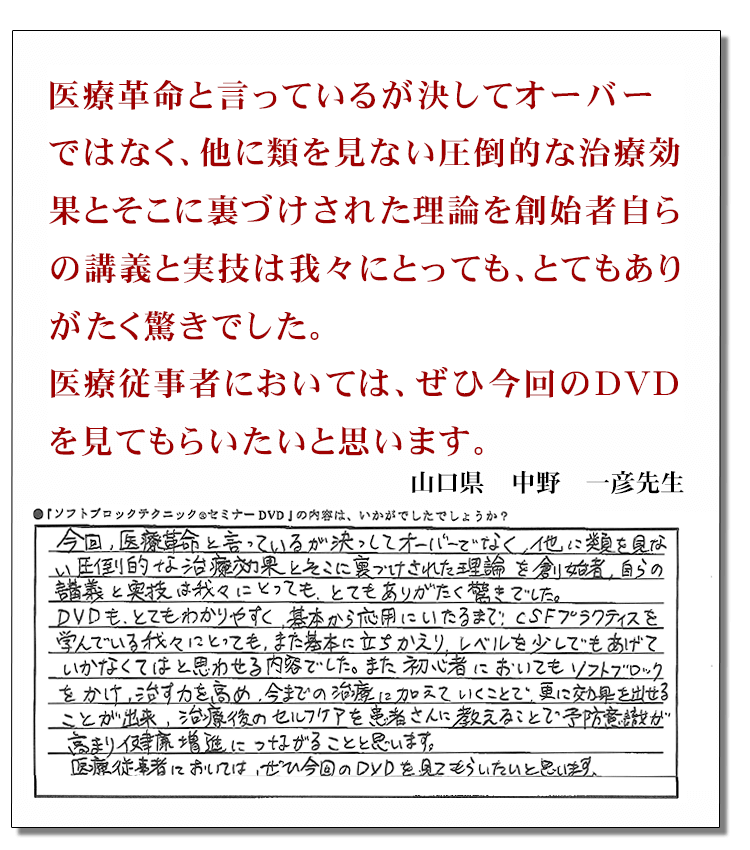 医療革命と言っているが決してオーバー
ではなく、他に類を見ない圧倒的な治療効
果とそこに裏づけされた理論を創始者自ら
の講義と実技は我々にとっても、とてもあり
がたく驚きでした。
医療従事者においては、ぜひ今回のDVD
を見てもらいたいと思います。
山口県 中野 一彦先生
●『ソフトブロックテクニック®セミナーDVD』の内容は、いかがでしたでしょうか？
今回、医療革命と言っているが決っしてオーバーでなく、他に類を見な
い圧倒的な治療効果とそこに裏づけされた理論を創始者、自らの
講義と実技は我々にとっても、とてもありがたく驚きでした。
DVDも、とてもわかりやすく、基本から応用にいたるまで、CSFプラクティスを
学んでいる我々にとっても、また基本に立ちかえり、レベルを少しでもあげて
いかなくてはと思わせる内容でした。また初心者においてもソフトブロック
をかけ、治す力を高め、今までの治療に加えていくことで、更に効果を出せる
ことが出来、治療後のセルフケアを患者さんに教えることで予防意識が
高まり健康増進につながることと思います。
医療従事者においては、ぜひ今回のDVDを見てもらいたいと思います。